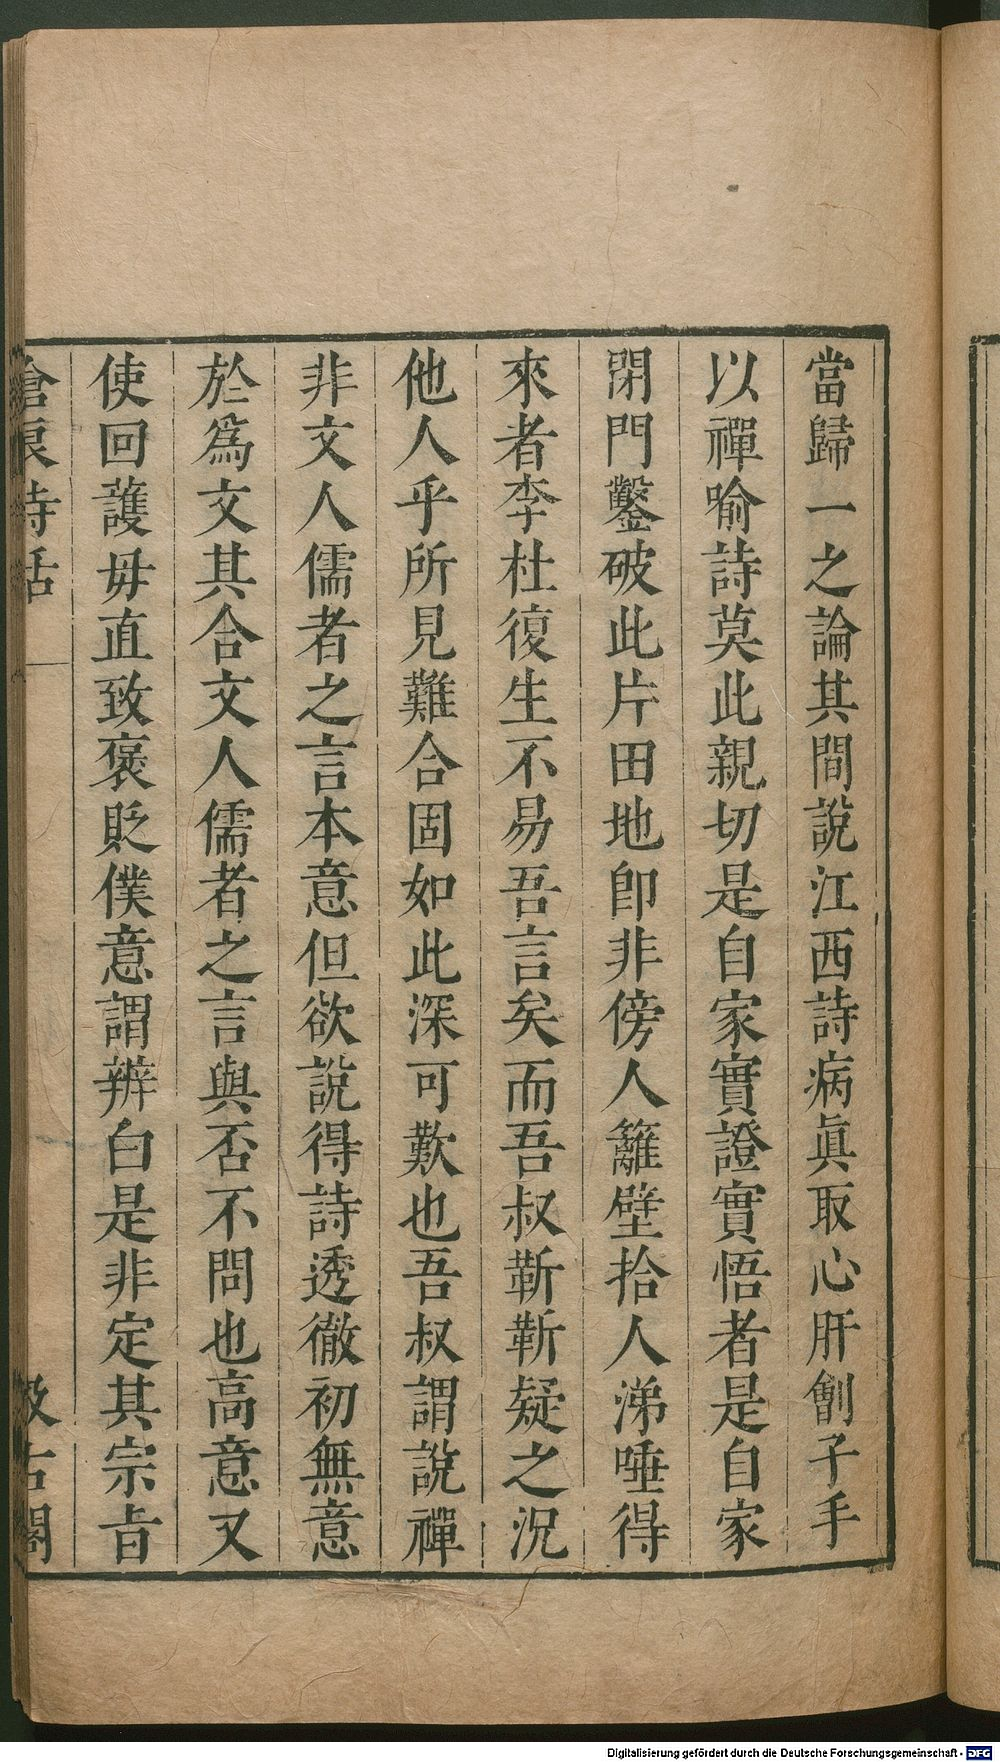 當歸一之論其間說江西詩病眞取心肝劊子手
以禪喻詩莫此親切是自家實證實悟者是自家
閉門鑿破此片田地卽非傍人籬壁拾人涕唾得
來者李杜復生不易吾言矣而吾叔靳靳疑之況
他人乎所見難合固如此深可歎也吾叔謂說禪
非文人儒者之言本意但欲說得詩透徹初無意
於爲文其合文人儒者之言與否不問也高意又
使回護毋直致襃貶僕意謂辨白是非定其宗旨
滄浪詩話
汲古閣
Digitalisierung gefördert durch die Deutsche Forschungsgemeinschaft - DFG